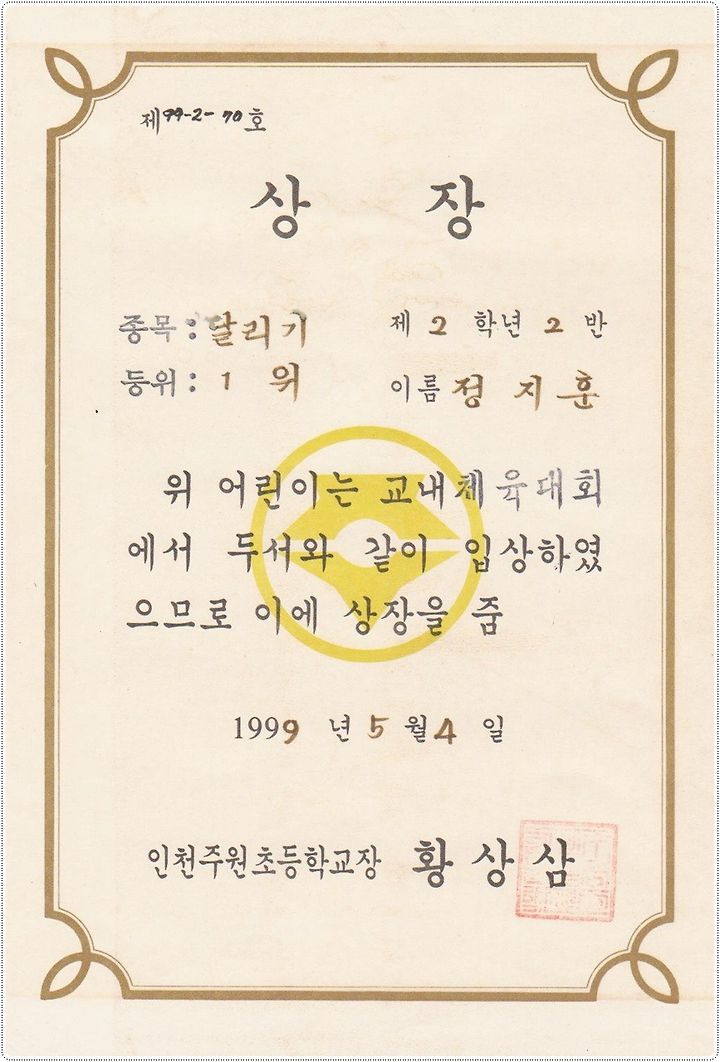 제99-2-70호
상 장
종목 : 달리기 제 2 학년 2 반
등위 : 1 위 이름 정 지 훈
위 어린이는 교내체육대회
에서 두서와 같이 입상하였
으므로 이에 상장을 줌
1999 년 5 월 4 일
인천주원초등학교장 황 상 삼